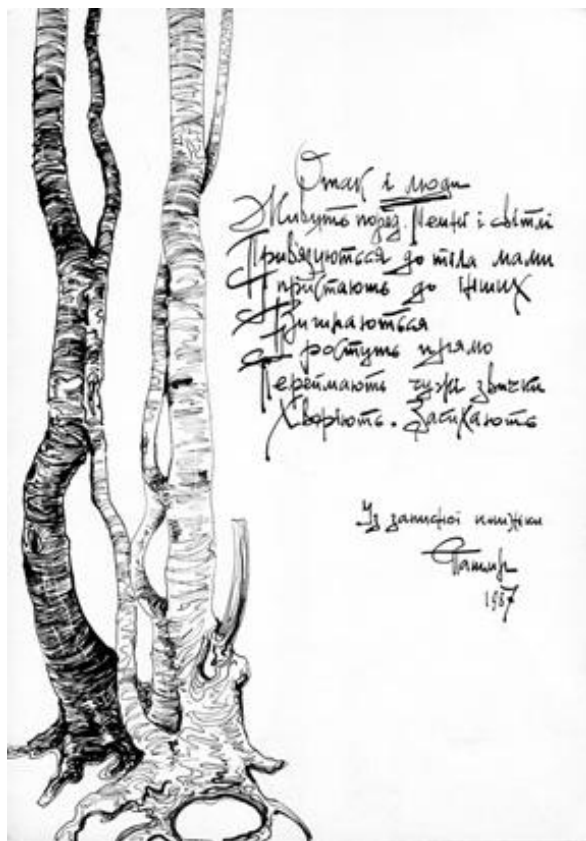 Отак і люди
Живуть поряд. Темні і світлі
Привязуються до тіла мами
Пристають до інших
Витираються
І ростуть прямо
Переймають чужі звички
Хворіють. Засихають
Із записної книжки
1987